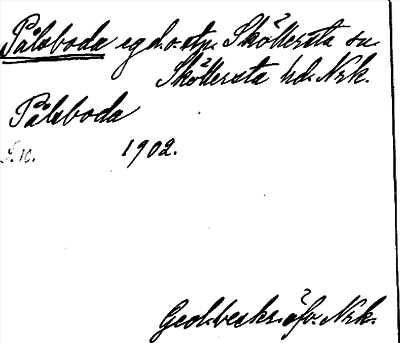 Pålsboda eg d. o. stp. Sköllersta sn.
Sköllersta hd. Nrk.
Pålsboda
1902.
Geol. beskr. öfv. Nrk.